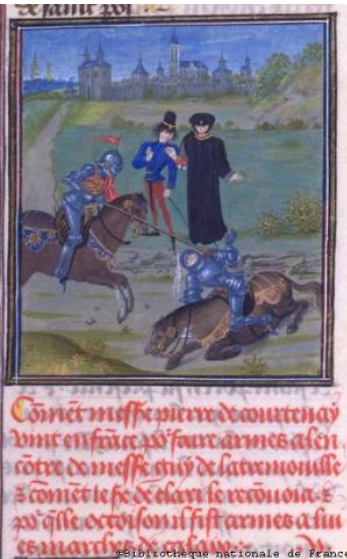 de saint pol
Cōmēt messe pierre de courtenay
vint en frāce po' faire armes a len
cōtre de messe guy de latremouille
⁊ cōmēt le s' de clari le recōuoia ⁊
po' q̄lle occoison il fist armes a lui
es marches de calays
©Bibliothèque nationale de France